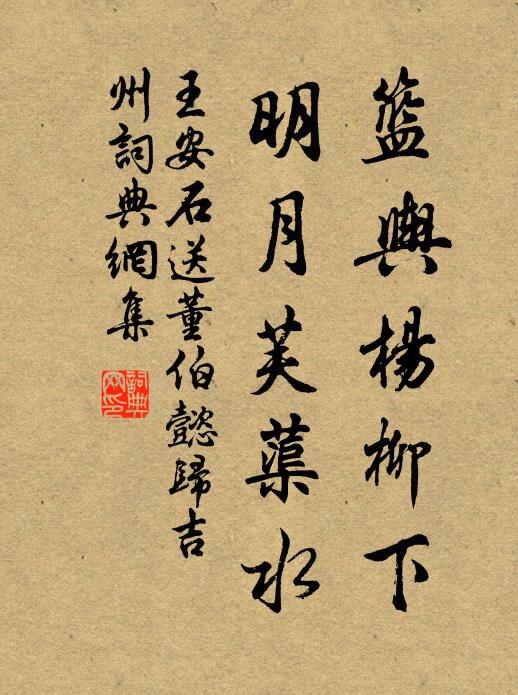 籃輿楊柳下
明月芙蕖水
王安石送董伯懿歸吉
州詞典網集
詞典